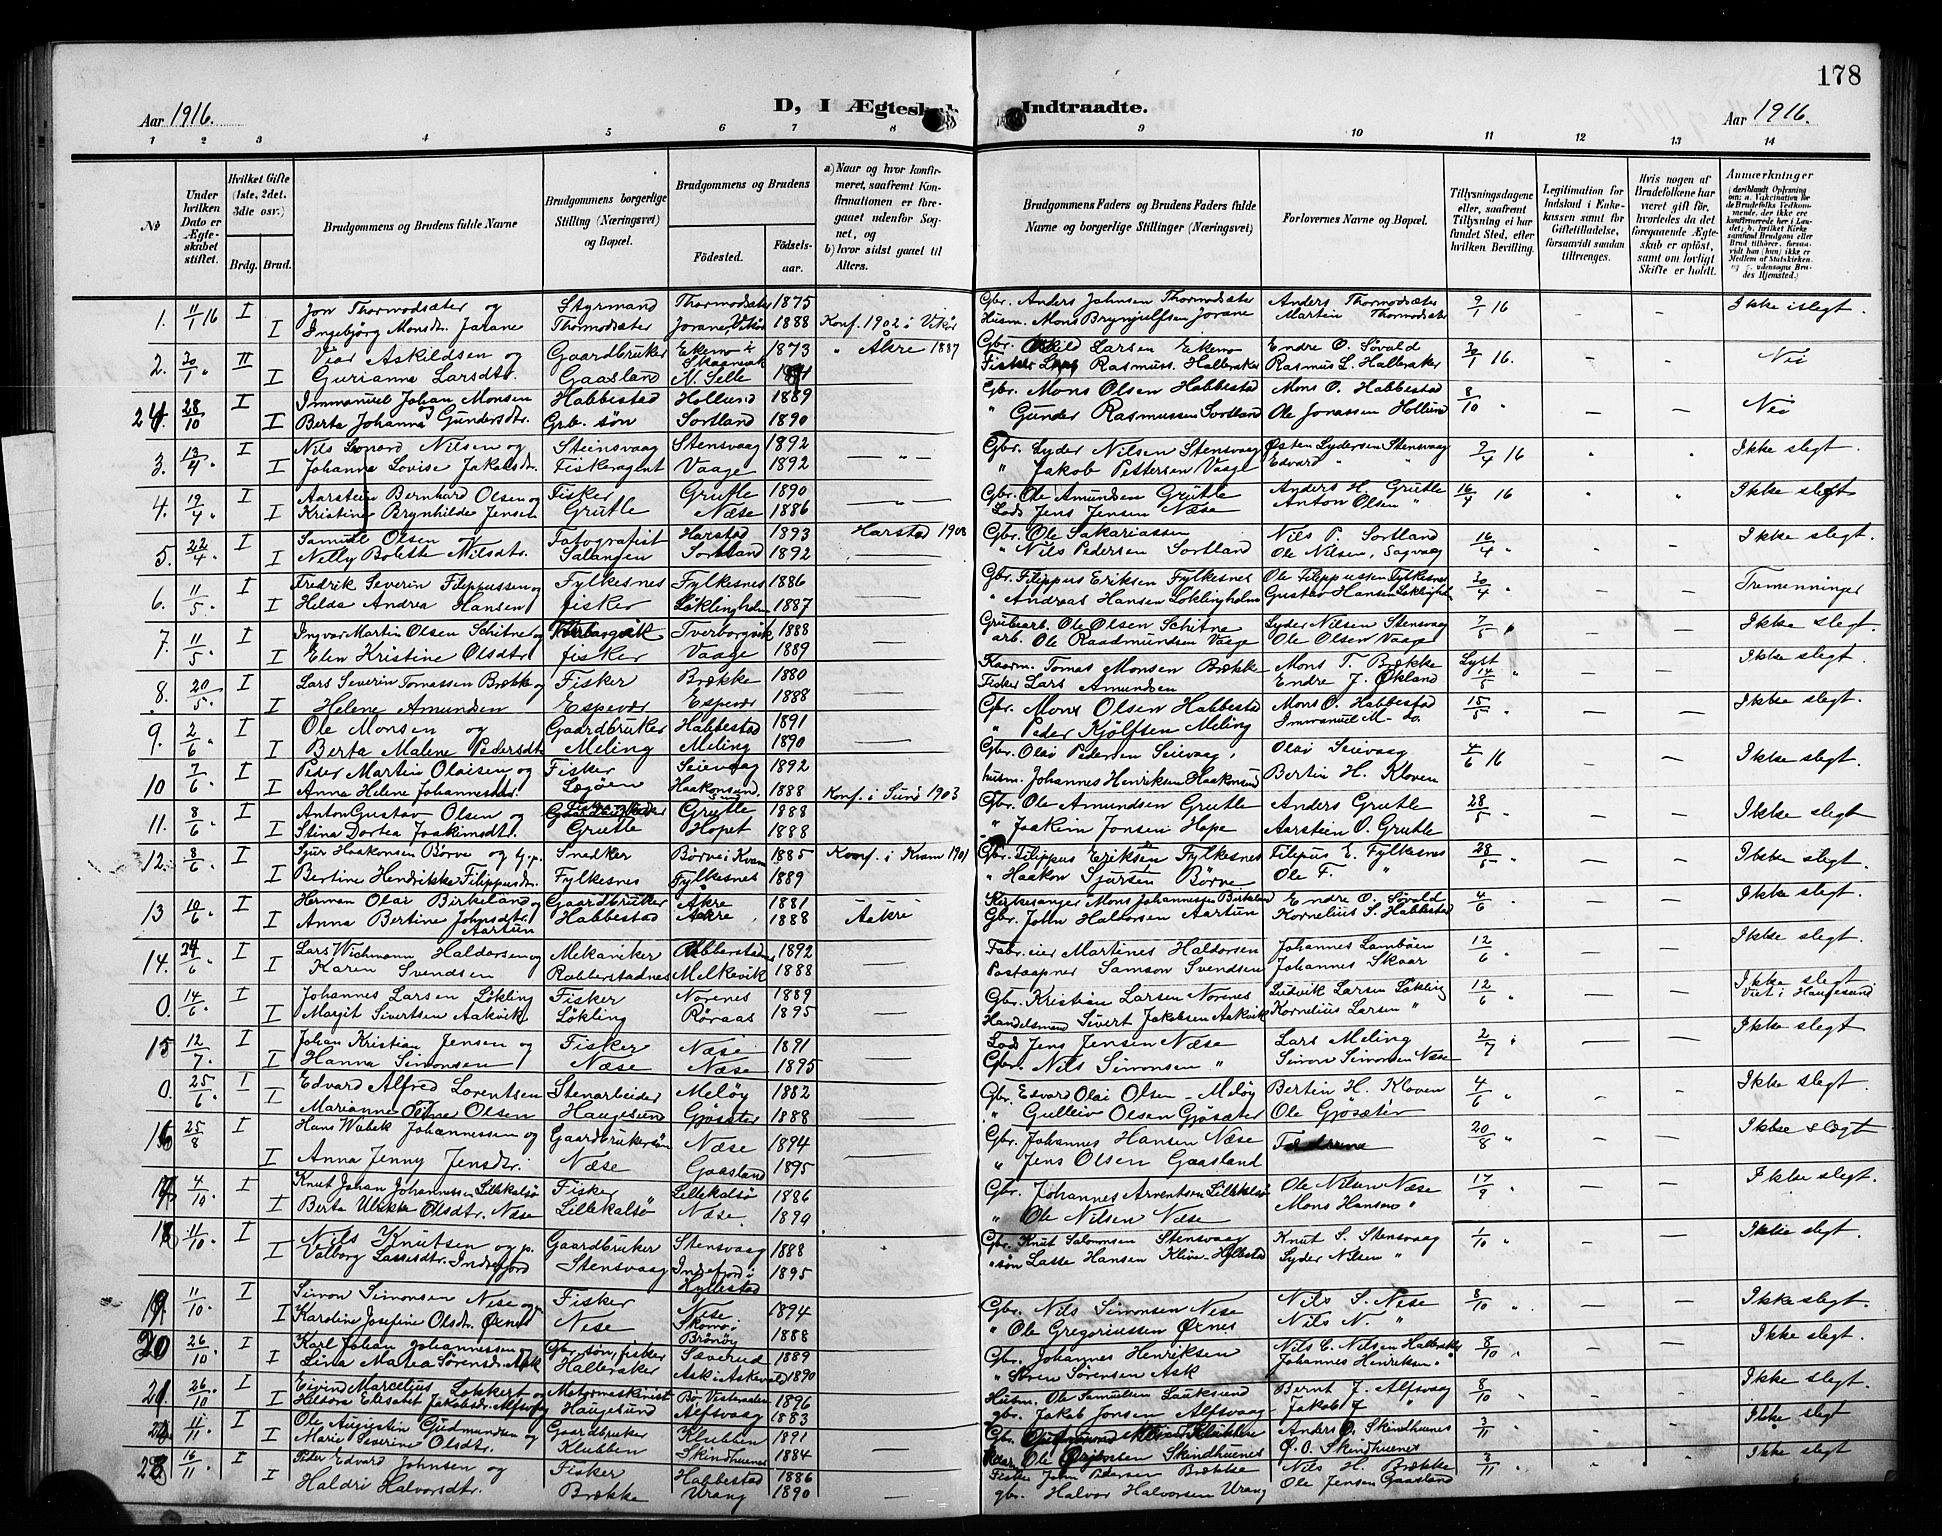 178
Aar 1916.
D, I Ægtesk Indtraadte.
Aar 1916.
1 2 3 4 5 6 7 8 9 10 11 12 13 14
No
Under hvilken Dato er Ægteskabet stiftet.
Hvilket Gifte (1ste, 2det, 3die osv.)
Brdg. Brud.
Brudgommens og Brudens fulde Navne
Brudgommens borgerlige Stilling (Næringsvei) og Bopæl.
Brudgommens og Brudens
Födested. Födselsaar.
a) Naar og hvor konfirmeret, saafremt Konfirmationen er foregaaet udenfor Sognet, og
b) hvor sidst gaaet til Alters.
Brudgommens Faders og Brudens Faders fulde Navne og borgerlige Stillinger (Næringsvei)
Forlovernes Navne og Bopæl.
Tillysningsdagene eller, saafremt Tillysning ei har fundet Sted, efter hvilken Bevilling.
Legitimation for Indskud i Enkekassen samt for Giftetilladelse, forsaavidt saadan tiltrænges.
Hvis nogen af Brudefolkene har været gift før, hvorledes da det foregaaende Ægteskab er opløst, samt om lovligt Skifte er holdt.
Anmærkninger
1. 11/1 16 I Jon Thormodsæter og Styrmand Thormodsæter 1875 Gbr. Anders Johnsen Thormodsæter Anders Thormodsæter 9/1 16 Ikke islegt
I Ingebjörg Monsdr. Jarane Thormodsæter Jorane, Vikör 1888 Konf. 1902 i Vikör Husm. Mons Brynjulfsen Jorane Martin Thormodsæter
2. 30/1 " III Askildsen og Gaardbruker Ekemo i Skaanevik 1873 " Åkre 1887 Gbr. Larsen Ekemo Endre O. Søvold 30/1 16. Nei
I Gurianna Larsdtr. Gaasland N. Selle Fisker Lars Rasmuss. Halleraker Rasmus L. Halleraker
24. 28/10 I Immanuel Johan Monsen og Habbestad Hollund 1889 Gbr. Mons Olsen Habbestad Mons O. Habbestad 8/10 " — — Nei
I Berta Johanna Gundersdtr. Grb. søn Sortland 1890 " Gunder Rasmussen Sortland Ole Jonassen Hollund
3. 13/4 " I Nils Leonard Nilsen og Steinsvaag Stensvaag 1892 — " — Gbr. Lyder Nilsen Stensvaag Østen Lydersen Stensvaag 9/4 16 " " Ikke slegt.
I Johanna Lovise Jakobsdr. Fiskeragent Vaage 1892 " Jakob Pettersen Vaage Edvard " "
4. 19/4 " I Aarstein Bernhard Olsen og Fisker Grutle 1890 — " — Gbr. Ole Amundsen Grutle Anders H. Grutle 16/4 16 " " Ikke slegt
I Kristine Brynhilde Jensen Grutle Næse 1886 Lods Jens Jensen Næse Anton Olsen "
5. 22/4 I Samuel Olsen og Fotografist Harstad 1893 Harstad 1908 Gbr. Ole Sakariassen Nils P. Sortland 16/4 " — — Ikke slegt.
I Nelly Bolette Nilsdtr. Salangen Sortland 1892 " Nils Pedersen Sortland Ole Nilsen, Sagvaag
6. 11/5 I Fredrik Severin Filippussen og Fylkesnes Fylkesnes 1886 Gbr. Filippus Eriksen Fylkesnes Ole Filippussen Fylkesnes 30/4 " — — Tremenninger
I Hilda Andrea Hansen fisker Løklingholm 1887 " Andreas Hansen Løklingholm Gustav Hansen Løklingh.
7. 11/5 I Ingvar Martin Olsen Schitne og Tverborgvik 1888 Grubearb. Ole Olsen Schitne Lyder Nilsen Stensvaag 7/5 " — — Ikke slegt.
I Elen Kristine Olsdtr. fisker Vaage 1889 arb. Ole Raadmundsen Vaage Ole Olsen Vaage
8. 20/5 " I Lars Severin Tomassen Brække og Fisker Brække 1880 Kaarm. Tomas Monsen Brække Mons T. Brække Lyst 14/5 " — — Ikke slegt.
I Helene Amundsen Espevær Espevær 1888 Fisker Lars Amundsen Endre J. Økland
9. 2/6 " I Ole Monsen og Gaardbruker Habbestad 1891 Gbr. Mons Olsen Habbestad Mons O. Habbestad 15/5 " — — Ikke slegt.
I Berta Malene Pedersdt. Meling Meling 1890 " Peder Kjølfsen Meling Immanuel M- do.
10 7/6 " I Peder Martin Olaisen og Fisker Seievaag 1892 Gbr. Olai Pedersen Seievaag, Olai Seievaag 4/6 16 — — Ikke slegt.
I Anna Helene Johannesdtr. Haakonsund 1888 Konf. i Sund 1903 husm. Johannes Henriksen Haakonsund Bertin H. Kloven
11. 8/6 " I Anton Gustav Olsen og Grutle 1888 Gbr. Ole Amundsen Grutle Anders Grutle 28/5 " — — Ikke slegt
I Stina Dortea Joakimsdt. Grutle Hopet 1888 " Joakim Jonsen Hope Aarstein O. Grutle
12. 8/6 " I Sjur Haakonsen Börve og Snedker Börve i Kvam 1885 Konf. i Kvam 1901 Gbr. Filippus Eriksen Fylkesnes Filipus E. Fylkesnes 28/5 " — — Ikke slegt.
I Bertine Hendrikke Filippusdr. Fylkesnes Fylkesnes 1889 " Haakon Sjursen Börve Ole F. "
13 10/6 " I Herman Olai Birkeland og Gaardbruker Åkre 1881 Kirkesanger Mons Johannessen Birkeland Endre O. Søvold 4/6 " — — Ikke slegt
I Anna Bertine Johnsdtr. Aartun Habbestad Aakre 1888 Aakre Gbr. John Halvorsen Aartun Kornelius S. Habbestad
14. 24/6 " I Lars Wichmann Haldorsen og Mekaniker Rabberstadnes 1892 Fabr. eier Martines Haldorsen Johannes Lambøen 12/6 — — Ikke slegt.
I Karen Svendsen Robberstadnes Melkevik 1888 Postaapner Samson Svendsen Johannes Skaar
0. 14/6 " I Johannes Larsen Løkling Fisker Norenes 1889 Gbr. Kristian Larsen Norenes Ludvik Larsen Løkling 12/6 " — — Ikke slegt Viet i Haugesund
I Margit Sivertsen Aakvik Løkling Røraas 1895 Handelsmand Sivert Jakobsen Aakvik Kornelius Larsen "
15 12/7 " I Johan Kristian Jensen og Fisker Næse 1891 Lods Jens Jensen Næse Lars Meling 2/7 " — — Ikke slegt
I Hanna Simonsen Næse Næse 1895 Gbr. Nils Simonsen " Simon Simonsen Næse
0 25/6 " I Edvard Alfred Lorentsen Stenarbeider Meløy 1882 Gbr. Edvard Olai Olsen - Meløy Bertin H. Kloven 4/6 " — — Ikke slegt.
I Marianne Olsen Haugesund Gjøsæter 1888 " Gulleiv Olsen Gjøsæter Ole Gjøsæter
16 25/8 I Hans Wabek Johannessen og Gaardbrukersøn Næse 1894 Gbr. Johannes Hansen Næse Fædrene 20/8 " — — Ikke slegt
I Anna Jenny Jensdtr. Næse Gaasland 1895 " Jens Olsen Gaasland
17 4/10 I Knut Johan Johannessen Lillekalsø Fisker Lillekalsø 1886 Gbr. Johannes Arventsen Lillekalsø Ole Nilsen Næse 17/9 " — — Ikke slegt.
I Berta Ulrikke Olsdtr. Næse Lillekalsø Næse 1890 " Ole Nilsen Næse Mons Hansen "
18 11/10 I Nils Knutsen og Gaardbruker Stensvaag 1888 Gbr. Knut Salomonsen Stensvaag Knut S. Stensvaag 1/10 " — — Ikke slegt.
I Valborg Lassesdtr. Indrefjord Stensvaag Indrefjord i Hyllestad 1895 søn Lasse Hansen Hyllestad Lyder Nilsen "
19 11/10 I Simon Simonsen Nese og Fisker Nese 1894 Gbr. Nils Simonsen Nese Nils S. Nese 8/10 " — — Ikke slegt.
I Karoline Josefine Olsdt. Øxnes Nese Brönöy 1888 " Ole Gregoriussen Øxnes Nils N. "
20 26/10 I Karl Johan Johannessen og Gbr. søn, fisker Sæverud 1889 Gbr. Johannes Henriksen Nils E. Nilsen Halleraker 8/10 " — — Ikke slegt.
I Lina Marta Sørensdr. Ask Halleraker Ask i Askevold 1890 " Søren Sørensen Ask Johannes Henriksen "
21 26/10 I Eivind Marcelius Lokkert og Motormaskinist Bø Vesteraalen 1896 Husm. Ole Samuelsen Bernt J. Alfsvaag 8/10 " — — Ikke slegt.
I Hildora Elisabet Jakobsdr. Alfsvaag Haugesund Alfsvaag 1883 gbr. Jakob Jonsen Alfsvaag Jakob J "
22 11/11 " I Ole Augustin Gudmundsen og Gaardbruker Klubben 1891 Gbr. Klubben Anders O. Skindhuenes 3/11 " — — Ikke slegt
I Marie Severine Olsdtr. Klubben Skindhuenes 1884 Ole Skindhuenes O. O. Skindhuenes
23 16/11 " I Peder Edvard Johnsen og Fisker Habbestad 1886 Fisker John Pedersen Brække Nils H. Brække 3/11 " — — Ikke slegt
I Haldri Halvorsdtr. Brække Urang 1890 gbr. Halvor Halvorsen Urang Ole Jensen Gaasland